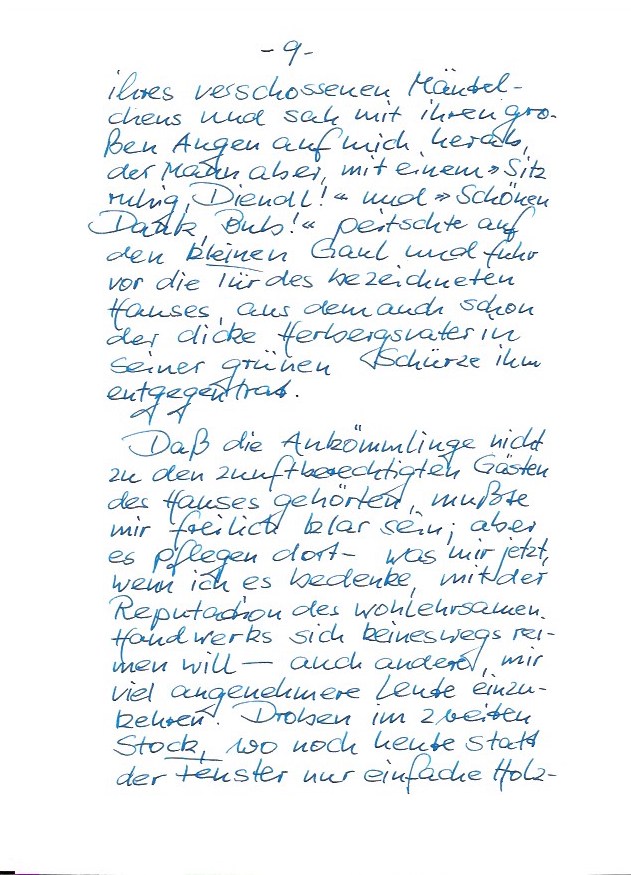 - 9 -
ihres verschossenen Mäntel-
chens und sah mit ihren gro-
ßen Augen auf mich herab,
der Mann aber, mit einem »Sitz
ruhig, Diendl!« und »Schönen
Dank, Bub!« peitschte auf
den kleinen Gaul und fuhr
vor die Tür des bezeichneten
Hauses, aus dem auch schon
der dicke Herbergsvater in
seiner grünen Schürze ihm
entgegentrat.
Daß die Ankömmlinge nicht
zu den zunftberechtigten Gästen
des Hauses gehörten, mußte
mir freilich klar sein; aber
es pflegen dort – was mir jetzt,
wenn ich es bedenke, mit der
Reputation des wohlehrsamen
Handwerks sich keineswegs rei-
men will – auch andere, mir
viel angenehmere Leute einzu-
kehren. Droben im zweiten
Stock, wo noch heute statt
der Fenster nur einfache Holz-